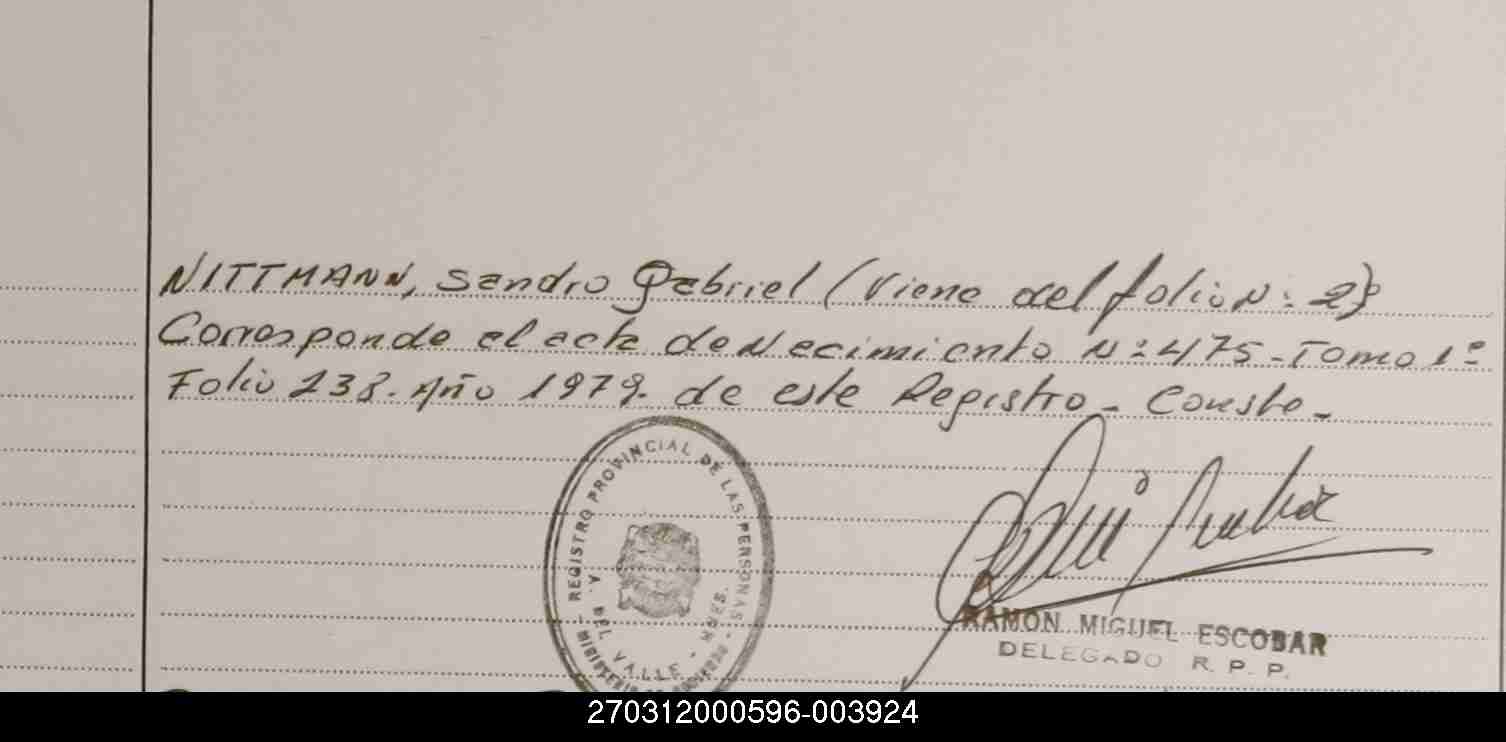 NITTMANN, Sandro Gabriel (Viene del folio N: 2)
Corresponde al acta de Nacimiento N: 475 - Tomo 1º
Folio 238. Año 1979. de este Registro - Conste -
REGISTRO PROVINCIAL DE LAS PERSONAS - MINISTERIO DE GOBIERNO -
A. DEL VALLE - MNES.
RAMON MIGUEL ESCOBAR
DELEGADO R. P. P.
270312000596-003924